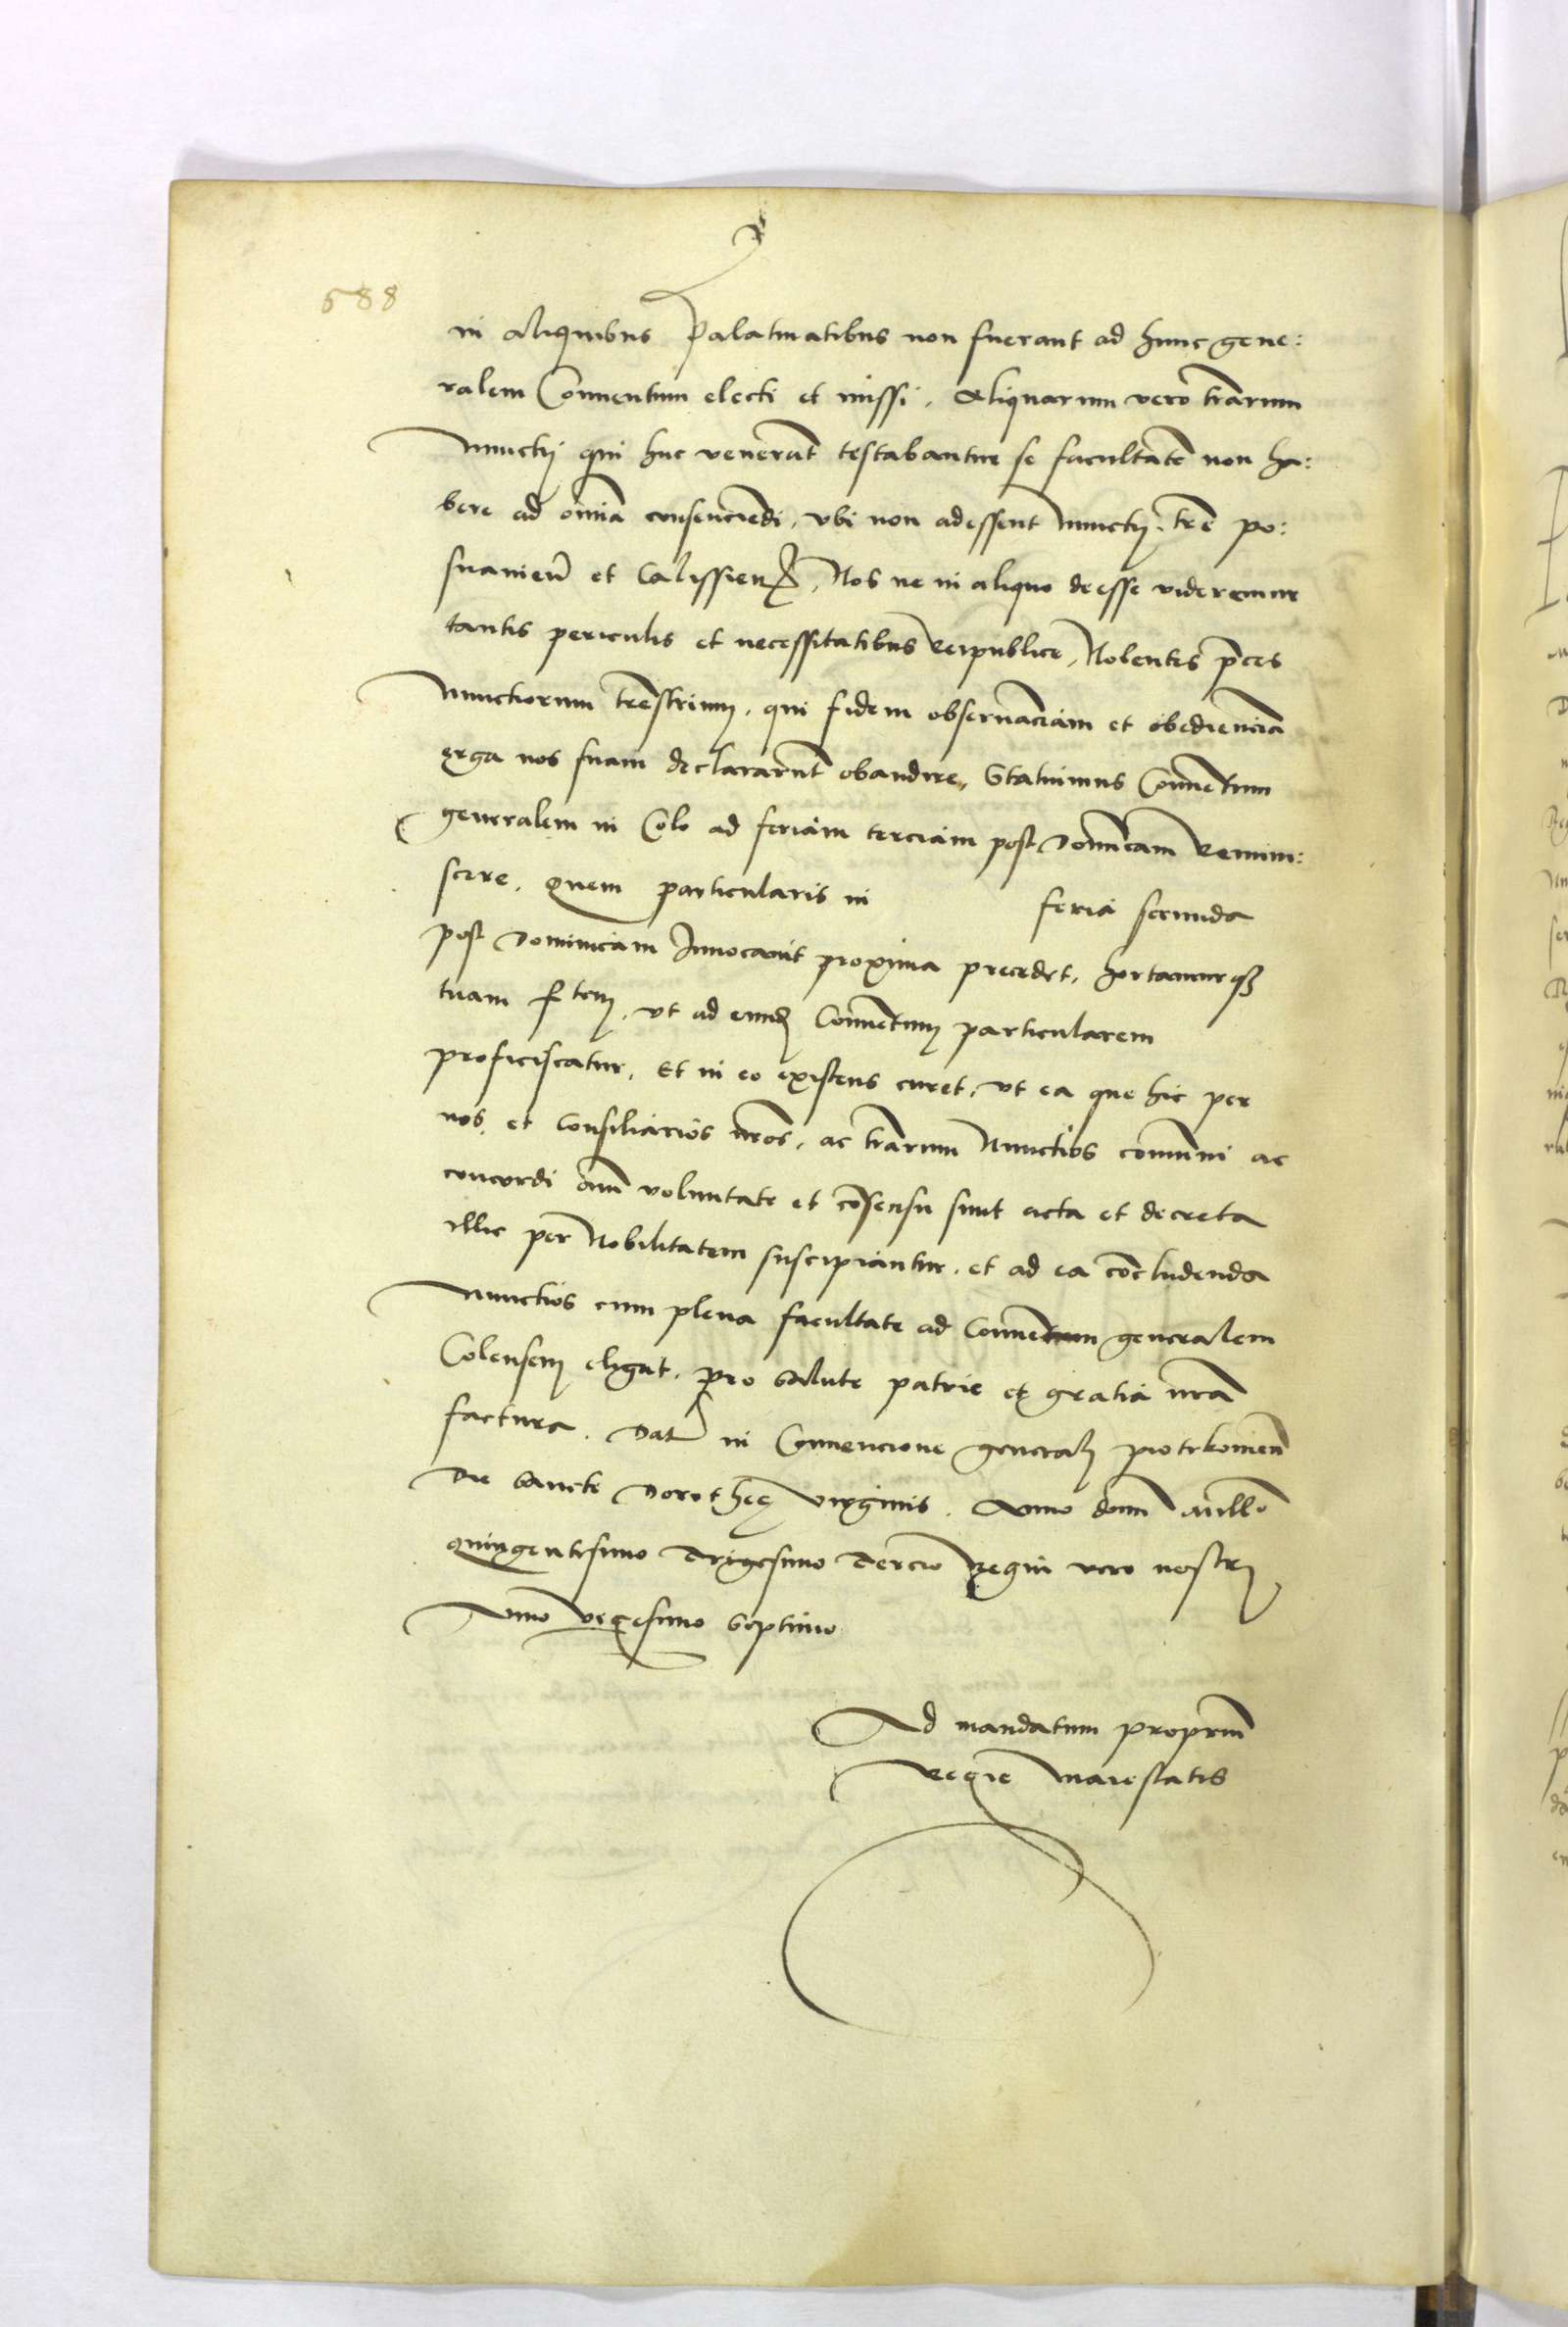 588
in aliquibus Palatinatibus non fuerant ad hunc gene:
ralem Conuentum electi et missi. Aliquarum vero trarum
Nunctij qui huc venerūt testabantur se facultatē non ha:
bere ad omia consenciēdi, vbi non adessent Nunctij trē po:
snanien̄ et Calissien̄, Nos ne in aliquo deesse videremur
tantis periculis et necessitatibus Reipublice, Nolentes p̄ces
Nunctiorum trēstrium, qui fidem obseruanciam et obedienciā
erga nos suam declararūt obaudire, Statuimus Conuētum
generalem in Colo ad feriam terciam post Dominicam Remini:
scere. Quem particularis in feria secunda
post Dominicam Inuocauit proxima precedet, hortamurqȝ
tuam f tem, vt ad eund Conuētum particularem
proficiscatur. Et in eo existens curet, vt ea que hic per
nos et Consiliarios nr̄os, ac trarum Nunctios comuni ac
concordi oīm voluntate et cōsensu sunt acta et decreta
illic per Nobilitatem suscipiantur, et ad ea cōcludenda
Nunctios cum plena facultate ad Conuentum generalem
Colensem eligāt. pro salute patrie et gratia nr̄a
factura. Dat in Conuencione general piotrkouien̄
Die Sancte Dorotheę virginis. Anno domī millō
quingentesimo Trigesimo Tercio Regni vero nostri
Anno vigesimo Septimo
Ad mandatum proprīū
Regie Maiestatis